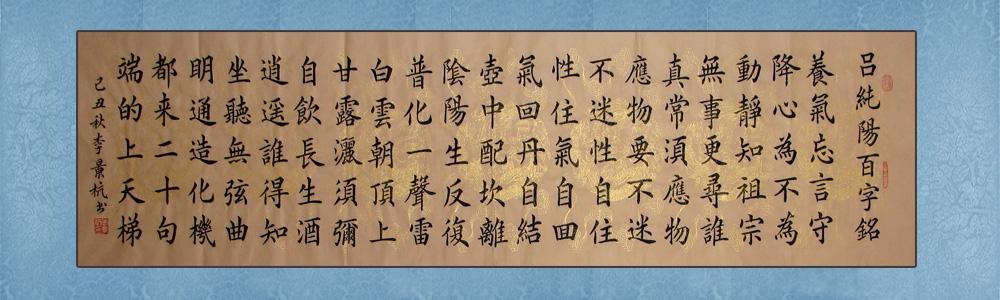 吕純陽百字銘
養氣忘言守
降心為不為
動靜知祖宗
無事更尋誰
真常湏應物
應物要不迷
不迷性自住
性住氣自回
氣回丹自結
壺中配坎離
陰陽生反復
普化一聲雷
白雲朝頂上
甘露灑須彌
自飲長生酒
逍遥誰得知
坐聽無弦曲
明通造化機
都来二十句
端的上天梯
己丑秋李景杭书